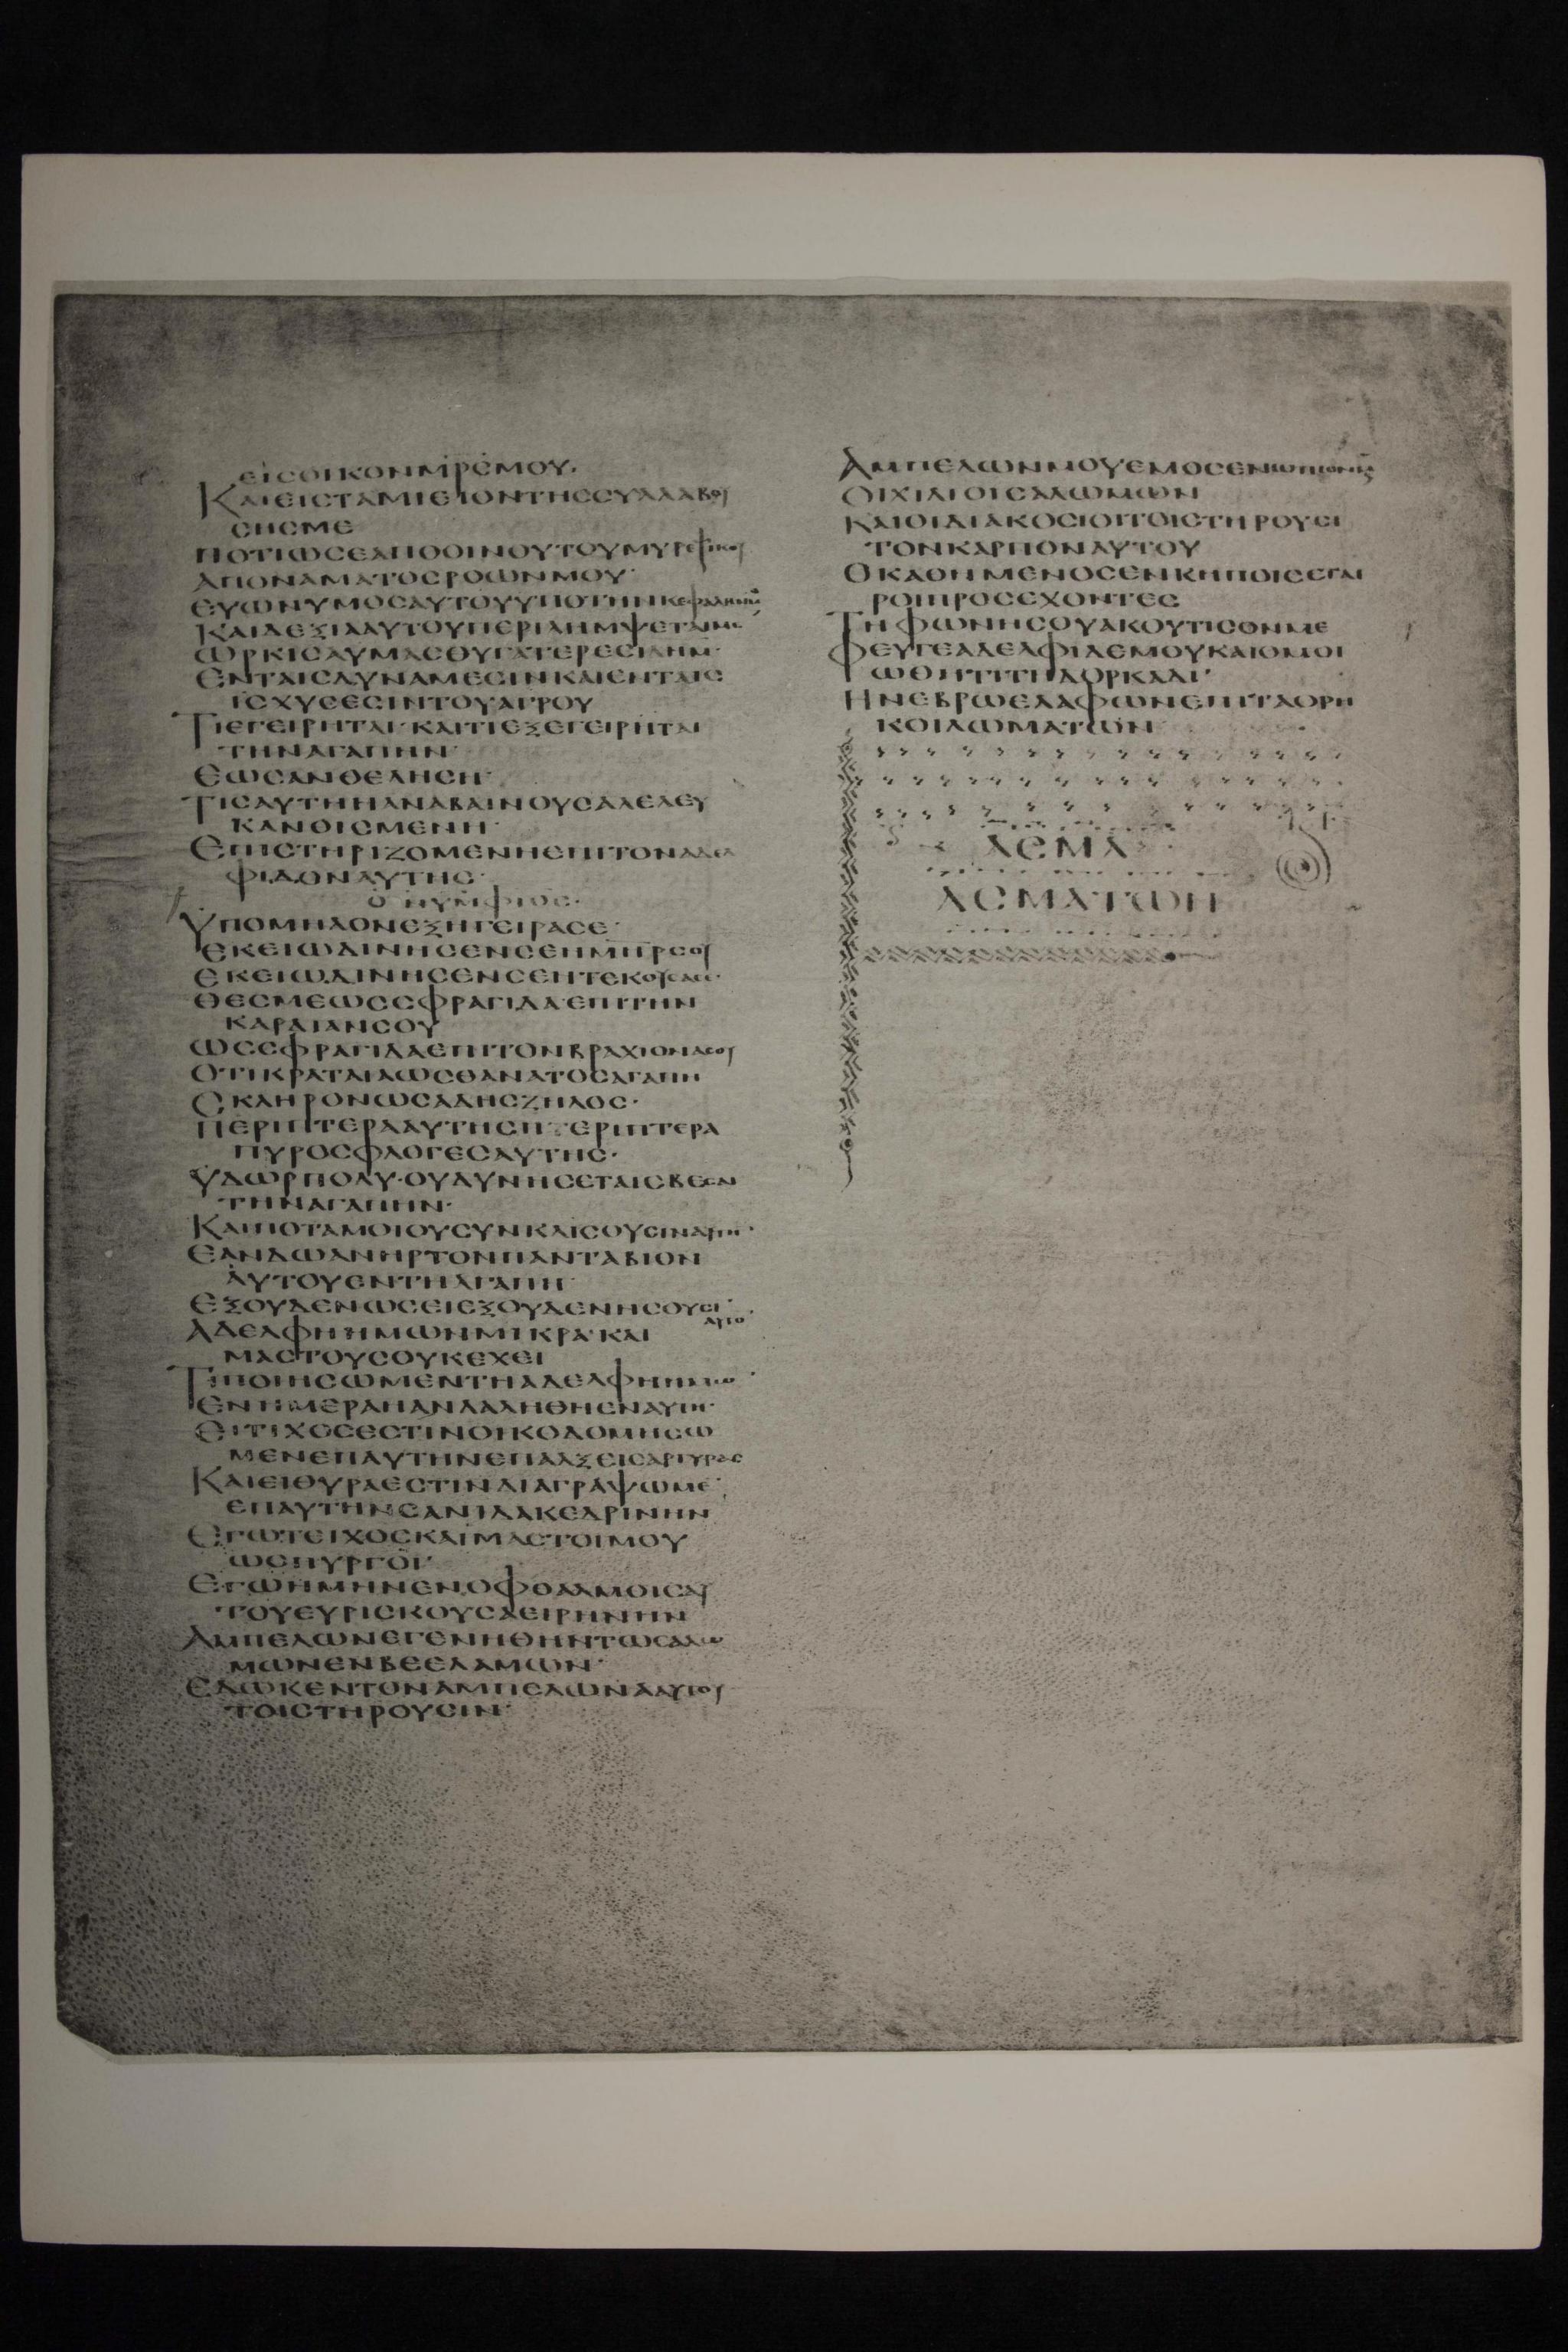 ΕΙϹΟΙΚΟΝΜΡ̅ϹΜΟΥ·
ΚΑΙΕΙϹΤΑΜΙΕΙΟΝΤΗϹϹΥΛΛΑΒΟΥ
ϹΗϹΜΕ
ΠΟΤΙΩϹΕΑΠΟΟΙΝΟΥΤΟΥΜΥΡΕΨΙΚΟΥ
ΑΠΟΝΑΜΑΤΟϹΡΟΩΝΜΟΥ·
ΕΥΩΝΥΜΟϹΑΥΤΟΥΥΠΟΤΗΝΚΕΦΑΛΗΝΜΟΥ
ΚΑΙΔΕΞΙΑΑΥΤΟΥΠΕΡΙΛΗΜΨΕΤΑΙΜΕ
ΩΡΚΙϹΑΥΜΑϹΘΥΓΑΤΕΡΕϹΙΛΗΜ·
ΕΝΤΑΙϹΔΥΝΑΜΕϹΙΝΚΑΙΕΝΤΑΙϹ
ΙϹΧΥϹΕϹΙΝΤΟΥΑΓΡΟΥ
ΤΙΕΓΕΙΡΗΤΑΙ·ΚΑΙΤΙΕΞΕΓΕΙΡΗΤΑΙ
ΤΗΝΑΓΑΠΗΝ·
ΕΩϹΑΝΘΕΛΗϹΗ·
ΤΙϹΑΥΤΗΗΑΝΑΒΑΙΝΟΥϹΑΛΕΛΕΥ
ΚΑΝΘΙϹΜΕΝΗ·
ΕΠΙϹΤΗΡΙΖΟΜΕΝΗΕΠΙΤΟΝΑΔΕΛ
ΦΙΔΟΝΑΥΤΗϹ·
Ο ΝΥΜΦΙΟϹ·
ΥΠΟΜΗΛΟΝΕΞΗΓΕΙΡΑϹΕ·
ΕΚΕΙΩΔΙΝΗϹΕΝϹΕΗΜΗΡϹΟΥ
ΕΚΕΙΩΔΙΝΗϹΕΝϹΕΗΤΕΚΟΥϹΑϹΕ·
ΘΕϹΜΕΩϹϹΦΡΑΓΙΔΑΕΠΙΤΗΝ
ΚΑΡΔΙΑΝϹΟΥ
ΩϹϹΦΡΑΓΙΔΑΕΠΙΤΟΝΒΡΑΧΙΟΝΑϹΟΥ
ΟΤΙΚΡΑΤΑΙΑΩϹΘΑΝΑΤΟϹΑΓΑΠΗ
ϹΚΛΗΡΟΝΩϹΑΔΗϹΖΗΛΟϹ·
ΠΕΡΙΠΤΕΡΑΑΥΤΗϹΠΕΡΙΠΤΕΡΑ
ΠΥΡΟϹΦΛΟΓΕϹΑΥΤΗϹ·
ΥΔΩΡΠΟΛΥ·ΟΥΔΥΝΗϹΕΤΑΙϹΒΕϹΕΝ
ΤΗΝΑΓΑΠΗΝ·
ΚΑΙΠΟΤΑΜΟΙΟΥϹΥΝΚΛΙϹΟΥϹΙΝΑΥΤΗ·
ΕΑΝΔΩΑΝΗΡΤΟΝΠΑΝΤΑΒΙΟΝ
ΑΥΤΟΥΕΝΤΗΑΓΑΠΗ·
ΕΞΟΥΔΕΝΩϹΕΙΕΞΟΥΔΕΝΗϹΟΥϹΙ·
ΑΥΤΟ·
ΑΔΕΛΦΗΗΜΩΝΜΙΚΡΑ·ΚΑΙ
ΜΑϹΤΟΥϹΟΥΚΕΧΕΙ
ΤΙΠΟΙΗϹΩΜΕΝΤΗΑΔΕΛΦΗΗΜΩ·
ΕΝΗΜΕΡΑΗΑΝΛΑΛΗΘΗΕΝΑΥΤΗ·
ΕΙΤΙΧΟϹΕϹΤΙΝΟΙΚΟΔΟΜΗϹΩ
ΜΕΝΕΠΑΥΤΗΝΕΠΑΛΞΕΙϹΑΡΓΥΡΑϹ
ΚΑΙΕΙΘΥΡΑΕϹΤΙΝΔΙΑΓΡΑΨΩΜΕ·
ΕΠΑΥΤΗΝϹΑΝΙΔΑΚΕΔΡΙΝΗΝ
ΕΓΩΤΕΙΧΟϹΚΑΙΜΑϹΤΟΙΜΟΥ
ΩϹΠΥΡΓΟΙ·
ΕΓΩΗΜΗΝΕΝΟΦΘΑΛΜΟΙϹΑΥ
ΤΟΥΕΥΡΙϹΚΟΥϹΑΕΙΡΗΝΗΝ
ΑΜΠΕΛΩΝΕΓΕΝΗΘΗΝΤΩϹΑΛΩ
ΜΩΝΕΝΒΕΕΛΑΜΩΝ·
ΕΔΩΚΕΝΤΟΝΑΜΠΕΛΩΝΑΑΥΤΟΥ
ΤΟΙϹΤΗΡΟΥϹΙΝ·
ΑΜΠΕΛΩΝΜΟΥΕΜΟϹΕΝΩΠΙΟΝΜΟΥ
ΟΙΧΙΛΙΟΙϹΑΛΩΜΩΝ
ΚΑΙΟΙΔΙΑΚΟϹΙΟΙΤΟΙϹΤΗΡΟΥϹΙ
ΤΟΝΚΑΡΠΟΝΑΥΤΟΥ
ΟΚΑΘΗΜΕΝΟϹΕΝΚΗΠΟΙϹΕΤΑΙ
ΡΟΙΠΡΟϹΕΧΟΝΤΕϹ
ΤΗΦΩΝΗϹΟΥΑΚΟΥΤΙϹΟΝΜΕ
ΦΕΥΓΕΑΔΕΛΦΙΔΕΜΟΥΚΑΙΟΜΟΙ
ΩΘΗΤΙΤΗΔΟΡΚΑΔΙ·
ΗΝΕΒΡΩΕΛΑΦΩΝΕΠΙΤΑΟΡΗ
ΚΟΙΛΩΜΑΤΩΝ
ΑϹΜΑ
ΑϹΜΑΤΩΝ